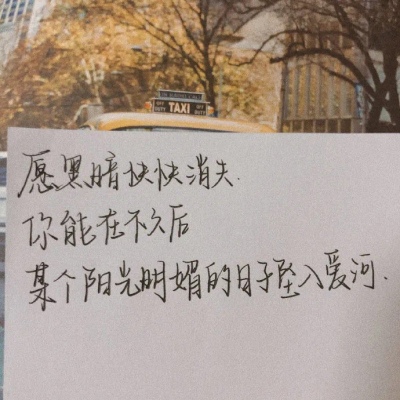 OFF DUTY TAXI OFF DUTY
愿黑暗快快消失.
你能在不久后
某个阳光明媚的日子坠入爱河.